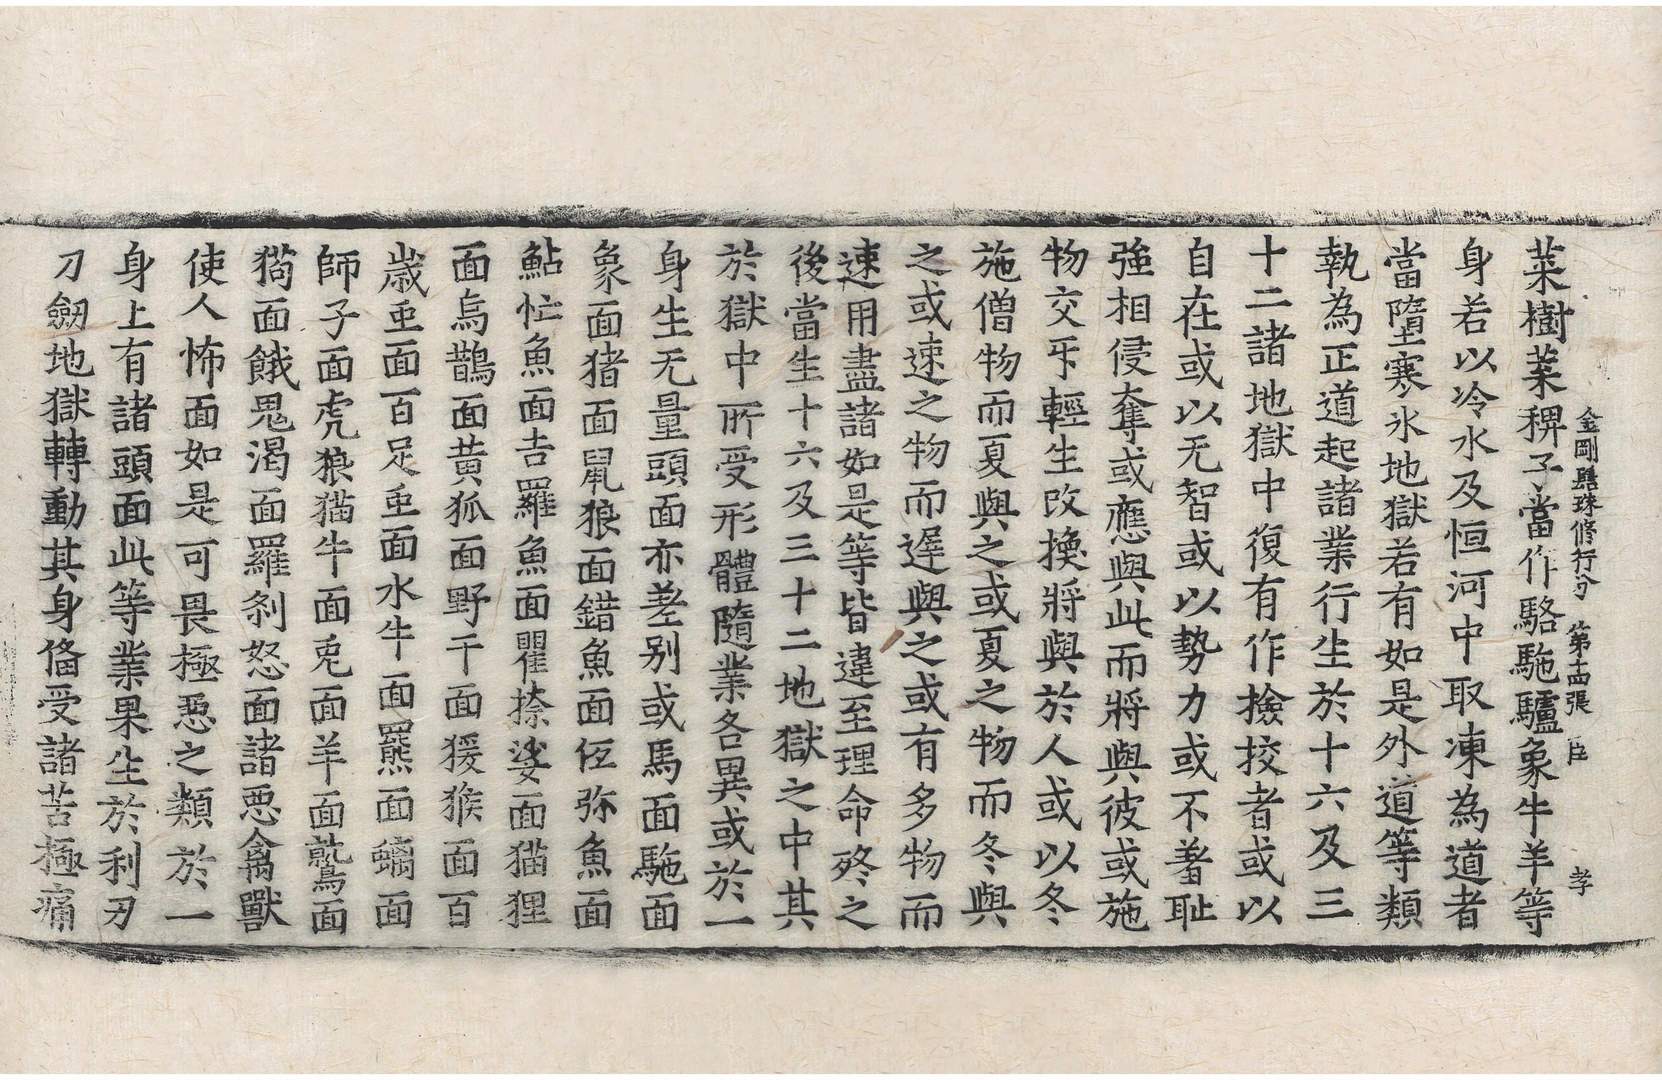 菜樹菓稗子當作駱駞驢象牛羊等
金剛髻珠修行分 第十四張 臣 孝
身若以冷水及恒河中取凍為道者
當墮寒氷地獄若有如是外道等類
執為正道起諸業行生於十六及三
十二諸地獄中復有作撿挍者或以
自在或以无智或以勢力或不著耻
強相侵奪或應與此而將與彼或施
物交㸦輕生改換將與於人或以冬
施僧物而夏與之或夏之物而冬與
之或速之物而遲與之或有多物而
速用盡諸如是等皆違至理命終之
後當生十六及三十二地獄之中其
於獄中所受形體隨業各異或於一
身生无量頭面亦差别或馬面駞面
象面猪面鼠狼面錯魚面伍弥魚面
鮎忙魚面吉羅魚面瞿捺娑面猫狸
面烏鵲面黄狐面野干面猨猴面百
歳䖝面百足䖝面水牛面羆面螭面
師子面虎狼猫牛面兎面羊面鷲面
猫面餓鬼渴面羅刹怒面諸惡禽獸
使人怖面如是可畏極惡之類於一
身上有諸頭面此等業果生於利刃
刀劒地獄轉動其身俻受諸苦極痛